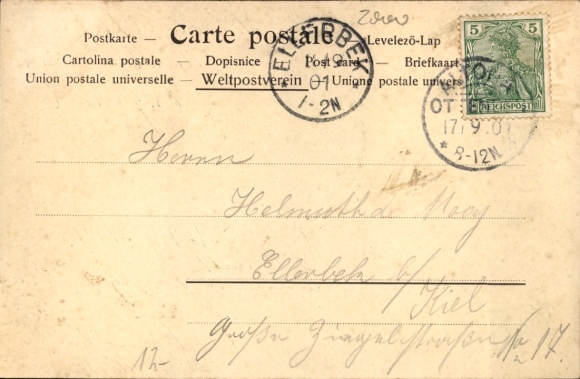 Postkarte — Carte postale — Levelezö-Lap
Cartolina postale — Dopisnice — Post card — Briefkaart
Union postale universelle — Weltpostverein — Unione postale univers
5 5
REICHSPOST
ELLERBEK
18 9
01
1-2N
ALTONA
OTTENSEN
17/9 01
* 8-12N
Herrn
Helmuth de
Ellerbek b/
Kiel
Große Ziegelstraße 17.
12-